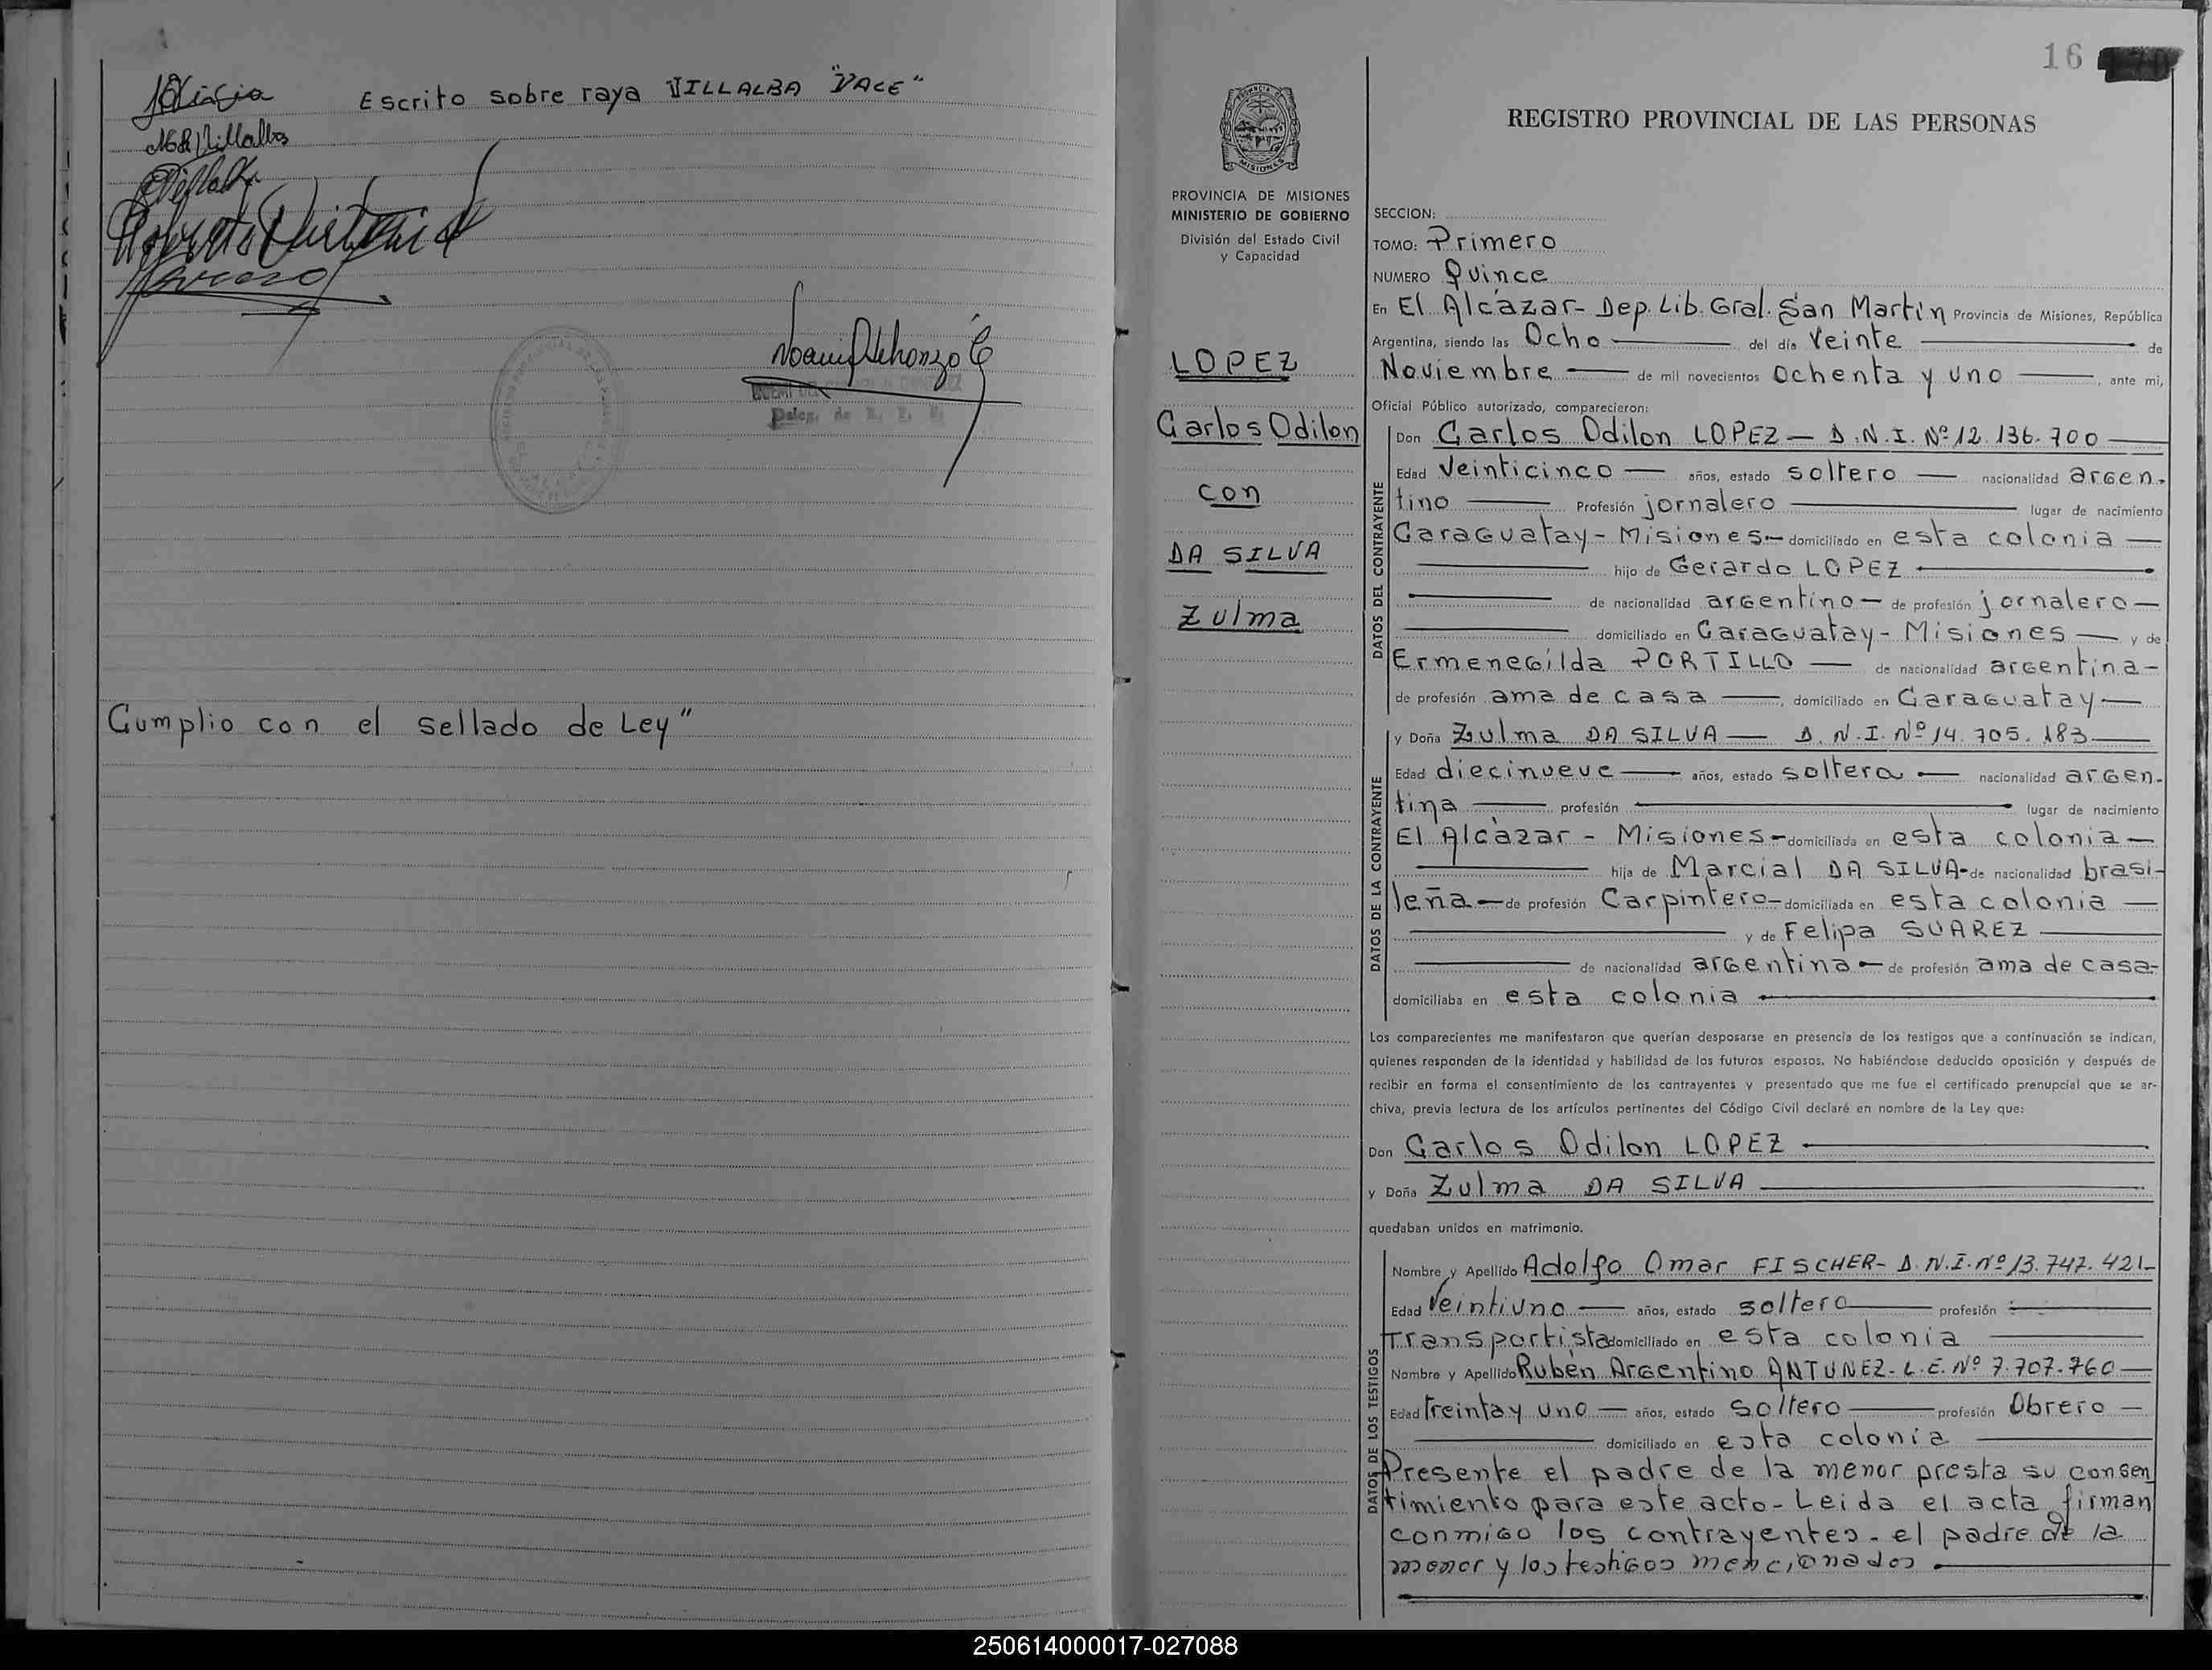 Escrito sobre raya VILLALBA "VALE"
Cumplio con el sellado de Ley"
16
REGISTRO PROVINCIAL DE LAS PERSONAS
MISIONES
PROVINCIA DE MISIONES
MINISTERIO DE GOBIERNO
División del Estado Civil
y Capacidad
LOPEZ
Carlos Odilon
con
DA SILVA
Zulma
SECCION:
TOMO: Primero
NUMERO Quince
En El Alcázar - Dep. Lib. Gral. San Martín Provincia de Misiones, República
Argentina, siendo las Ocho — del día Veinte — de
Noviembre — de mil novecientos ochenta y uno —, ante mi,
Oficial Público autorizado, comparecieron:
DATOS DEL CONTRAYENTE
Don Carlos Odilon LOPEZ — D.N.I. Nº 12.136.700 —
Edad Veinticinco — años, estado soltero — nacionalidad argen-
tino — Profesión jornalero — lugar de nacimiento
Caraguatay - Misiones - domiciliado en esta colonia —
— hijo de Gerardo LOPEZ —
— de nacionalidad argentino — de profesión jornalero —
— domiciliado en Caraguatay - Misiones — y de
Ermenegilda PORTILLO — de nacionalidad argentina -
de profesión ama de casa —, domiciliado en Caraguatay —
DATOS DE LA CONTRAYENTE
y Doña Zulma DA SILVA — D.N.I. Nº 14.705.183 —
Edad diecinueve — años, estado soltera — nacionalidad argen-
tina — profesión — lugar de nacimiento
El Alcázar - Misiones - domiciliada en esta colonia —
— hija de Marcial DA SILVA - de nacionalidad brasi-
leña — de profesión Carpintero - domiciliada en esta colonia —
— y de Felipa SUAREZ —
— de nacionalidad argentina — de profesión ama de casa -
domiciliaba en esta colonia —
Los comparecientes me manifestaron que querían desposarse en presencia de los testigos que a continuación se indican,
quienes responden de la identidad y habilidad de los futuros esposos. No habiéndose deducido oposición y después de
recibir en forma el consentimiento de los contrayentes y presentado que me fue el certificado prenupcial que se ar-
chiva, previa lectura de los artículos pertinentes del Código Civil declaré en nombre de la Ley que:
Don Carlos Odilon LOPEZ —
y Doña Zulma DA SILVA —
quedaban unidos en matrimonio.
DATOS DE LOS TESTIGOS
Nombre y Apellido Adolfo Omar FISCHER - D.N.I. Nº 13.747.421 -
Edad Veintiuno — años, estado soltero — profesión —
Transportista domiciliado en esta colonia —
Nombre y Apellido Rubén Argentino ANTUNEZ - L.E. Nº 7.707.760 —
Edad treinta y uno — años, estado soltero — profesión Obrero —
— domiciliado en esta colonia —
Presente el padre de la menor presta su consen
timiento para este acto - Leida el acta firman
conmigo los contrayentes - el padre de la
menor y los testigos mencionados —
250614000017-027088